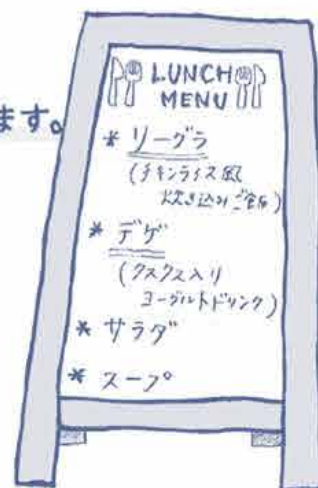 ます。
LUNCH
MENU
* リーグラ
(チキンライス風
炊き込みご飯)
* デゲ
(クスクス入り
ヨーグルトドリンク)
* サラダ
* スープ